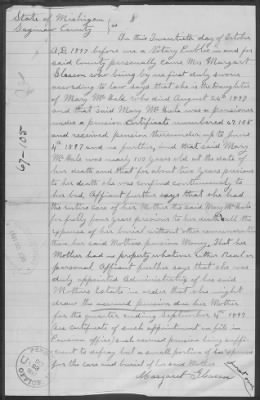 State of Michigan
Saginaw County } ss
On this Twentieth day of October
A.D. 1897 before me a Notary Public in and for
said County personally came Mrs Margaret
Gleason who being by me first duly sworn
according to law says that she is the Daughter
of Mary McHale who died August 24th 1897
and that said Mary McHale was a pensioner
under a pension Certificate numbered 67.105
and received pension thereunder up to June
4th 1897 and us further, and that said Mary
McHale was nearly 100 years old at the date of
her death and that for about two years previous
to her death she was confined continuously to
her bed. Affiant further says that she had
the entire care of her Mother the said Mary McHale
for fully four years previous to her death, all the
expenses of her burial without other remuneration
than her said Mothers pension Money. That her
Mother had no property whatever either Real or
personal. Affiant further says that she was
duly appointed Administratrix of her said
Mothers Estate in order that she might
draw the accrued pension due her Mother
for the quarter ending September 4th 1897
(see certificate of such appointment on file in
Pension office) such accrued pension being suffi-
cient to defray but a small portion of her expenses
for the care and burial of her said Mother
Margaret Gleason
67-105